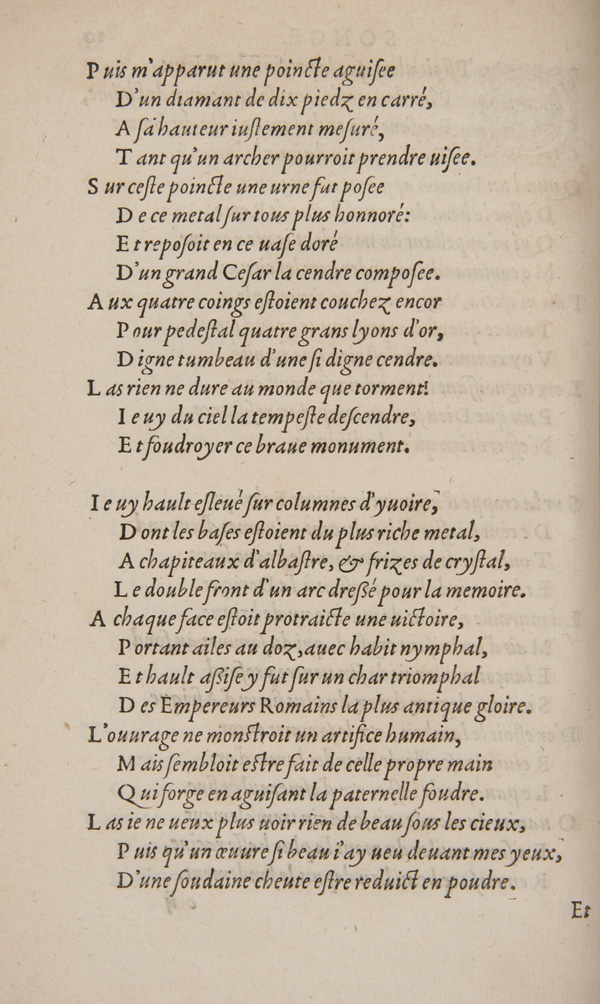 Puis m'apparut une poincte aguiſee
D'un diamant de dix piedz en carré,
A ſa hauteur iuſtement meſuré,
Tant qu'un archer pourroit prendre uiſee.
Sur ceſte poincte une urne fut poſee
De ce metal ſur tous plus honnoré:
Et repoſoit en ce uaſe doré
D'un grand Ceſar la cendre compoſee.
Aux quatre coings eſtoient couchez encor
Pour pedeſtal quatre grans lyons d'or,
Digne tumbeau d'une ſi digne cendre.
Las rien ne dure au monde que torment!
Ie uy du ciel la tempeſte deſcendre,
Et foudroyer ce braue monument.
Ie uy hault eſleué ſur columnes d'yuoire,
Dont les baſes eſtoient du plus riche metal,
A chapiteaux d'albaſtre, & frizes de cryſtal,
Le double front d'un arc dreßé pour la memoire.
A chaque face eſtoit protraicte une uictoire,
Portant ailes au doz, auec habit nymphal,
Et hault aßiſe y fut ſur un char triomphal
Des Empereurs Romains la plus antique gloire.
L'ouurage ne monſtroit un artifice humain,
Mais ſembloit eſtre fait de celle propre main
Qui forge en aguiſant la paternelle foudre.
Las ie ne ueux plus uoir rien de beau ſous les cieux,
Puis qu'un œuure ſi beau i'ay ueu deuant mes yeux,
D'une ſoudaine cheute eſtre reduict en poudre.
Et